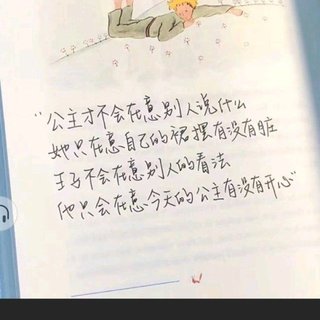 “公主才不会在意别人说什么
她只在意自己的裙摆有没有脏
王子不会在意别人的看法
他只会在意今天的公主有没有开心”